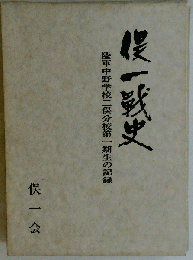 俣一戦史
陸軍中野学校二俣分校第一期生の記録
俣一会